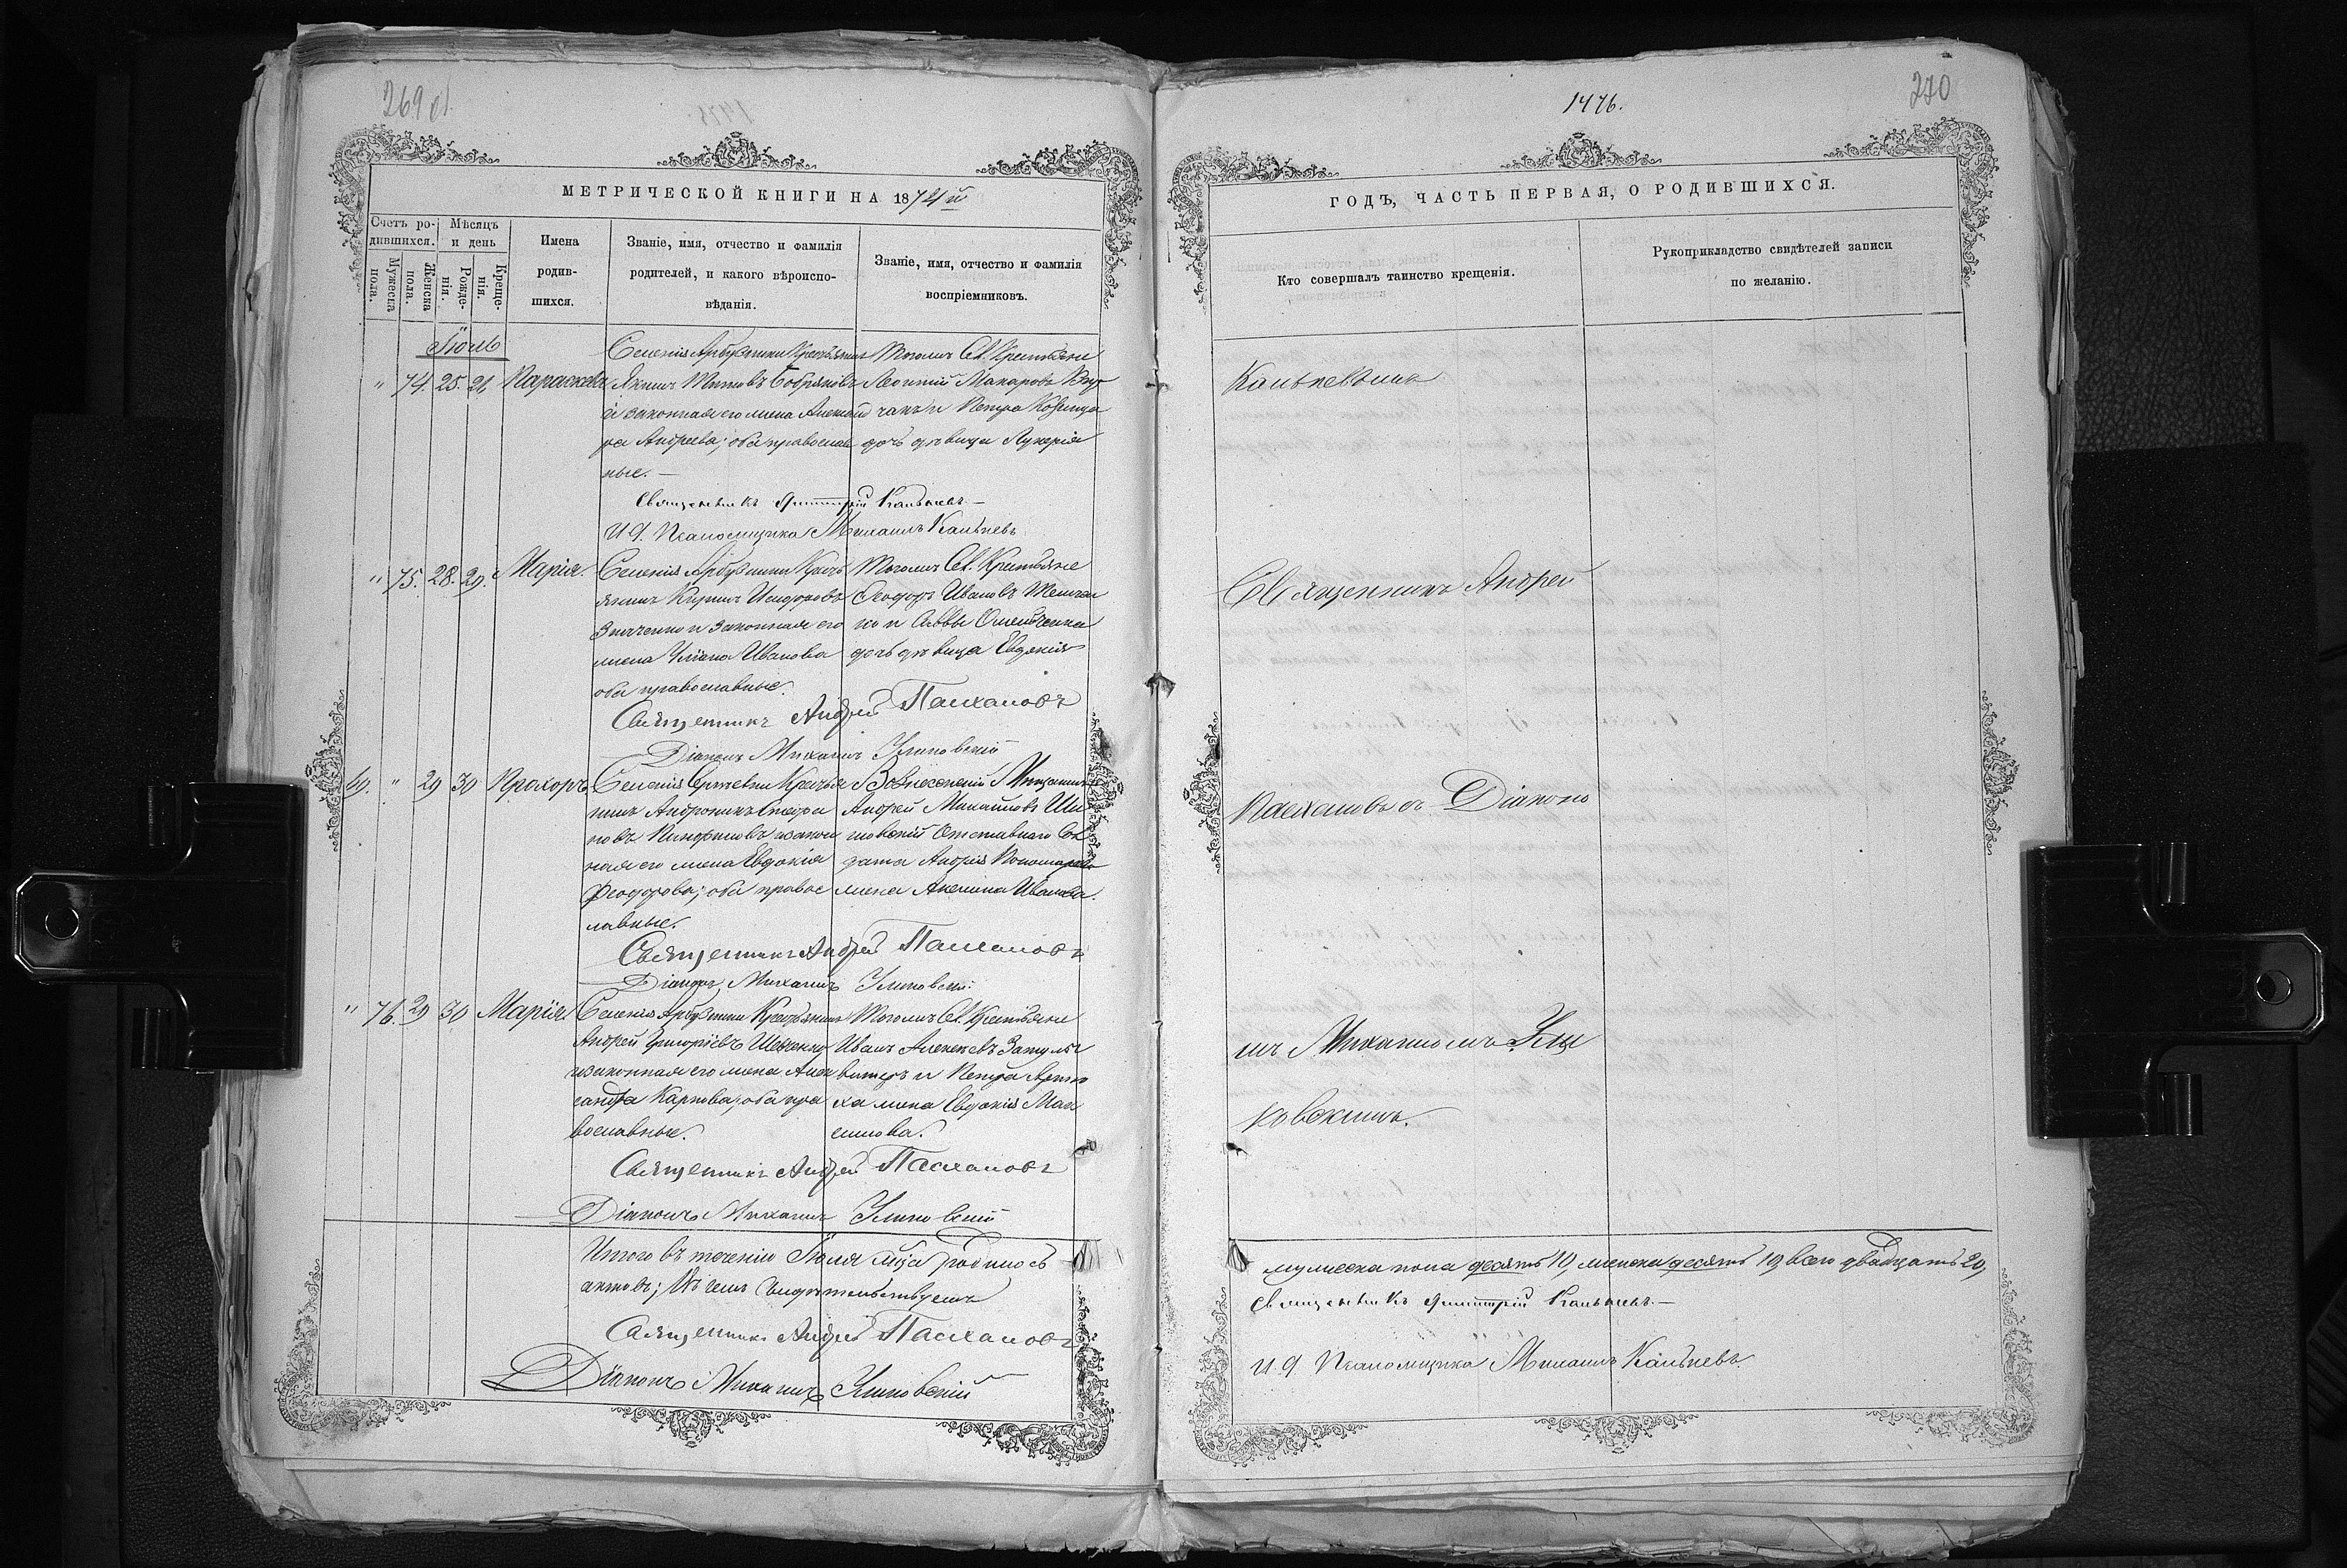 269 об.
МЕТРИЧЕСКОЙ КНИГИ НА 1874й
Счетъ ро-
дившихся.
Мужеска
пола.
Женска
пола.
Мѣсяцъ
и день
Рожде-
нія.
Креще-
нія.
Имена
родив-
шихся.
Званіе, имя, отчество и фамилія
родителей, и какого вѣроиспо-
вѣданія.
Званіе, имя, отчество и фамилія
воспріемниковъ.
Іюль
" 74. 25. 26 Параскева
Селенія Арбузинки Крестьянинъ
Якимъ Титовъ Бобряковъ
и законная его жена
Андреева; оба православ
ные. —
Тогожъ Ск. Крестьяне
Леонтій Макаровъ
и Петра
дочь дѣвица Лукерія
Священникъ Димитрій Кальневъ —
И д. Псаломщика Михаилъ Кальневъ
" 75. 28. 29. Марія.
Селенія Арбузинки Кресть
янинъ Кирилъ Исидоровъ
и законная его
жена Уліяна Иванова
оба православные.
Тогожъ Ск. Крестьяне
Ѳеодоръ Ивановъ
ко и Саввы
дочь дѣвица Евдокія
Священникъ Андрей Пасхаловъ
Діаконъ Михаилъ Улиновскій
69. " 29 30 Прохоръ
Селенія Кресть
нинъ Андроникъ Спиридо
новъ и закон
ная его жена Евдокія
Феодорова; оба правос
лавные.
Вознесенскій Мещанинъ
Андрей Михайловъ Ши
новскій Отставнаго Сол
дата Андрія Пономарева
жена Акилина Иванова.
Священникъ Андрей Пасхаловъ
Діаконъ Михаилъ Улиновскій
" 76. 29 30 Марія.
Селенія Арбузинки Крестьянинъ
Андрей Григоріевъ Шевченко
и законная его жена Алек
сандра Карпова; оба пра
вославные.
Тогожъ Ск. Крестьяне
Иванъ Алексѣевъ Затули
витеръ и Петра
ха жена Евдокія Мак
симова.
Священникъ Андрей Пасхаловъ
Діаконъ Михаилъ Улиновскій
Итого въ теченіи Іюля мѣца родилось
актовъ; Въ чемъ Свидѣтельствуемъ
Священникъ Андрей Пасхаловъ
Діаконъ Михаилъ Улиновскій
1476.
270
ГОДЪ, ЧАСТЬ ПЕРВАЯ, О РОДИВШИХСЯ.
Кто совершалъ таинство крещенія.
Рукоприкладство свидѣтелей записи
по желанію.
Кальневымъ
Священникъ Андрей
Пасхаловъ съ Діаконо
мъ Михаиломъ Ули
новскимъ.
мужеска пола десять 10, женска десять 10, всего двадцать 20,
Священникъ Димитрій Кальневъ. —
И д Псаломщика Михаилъ Кальневъ.